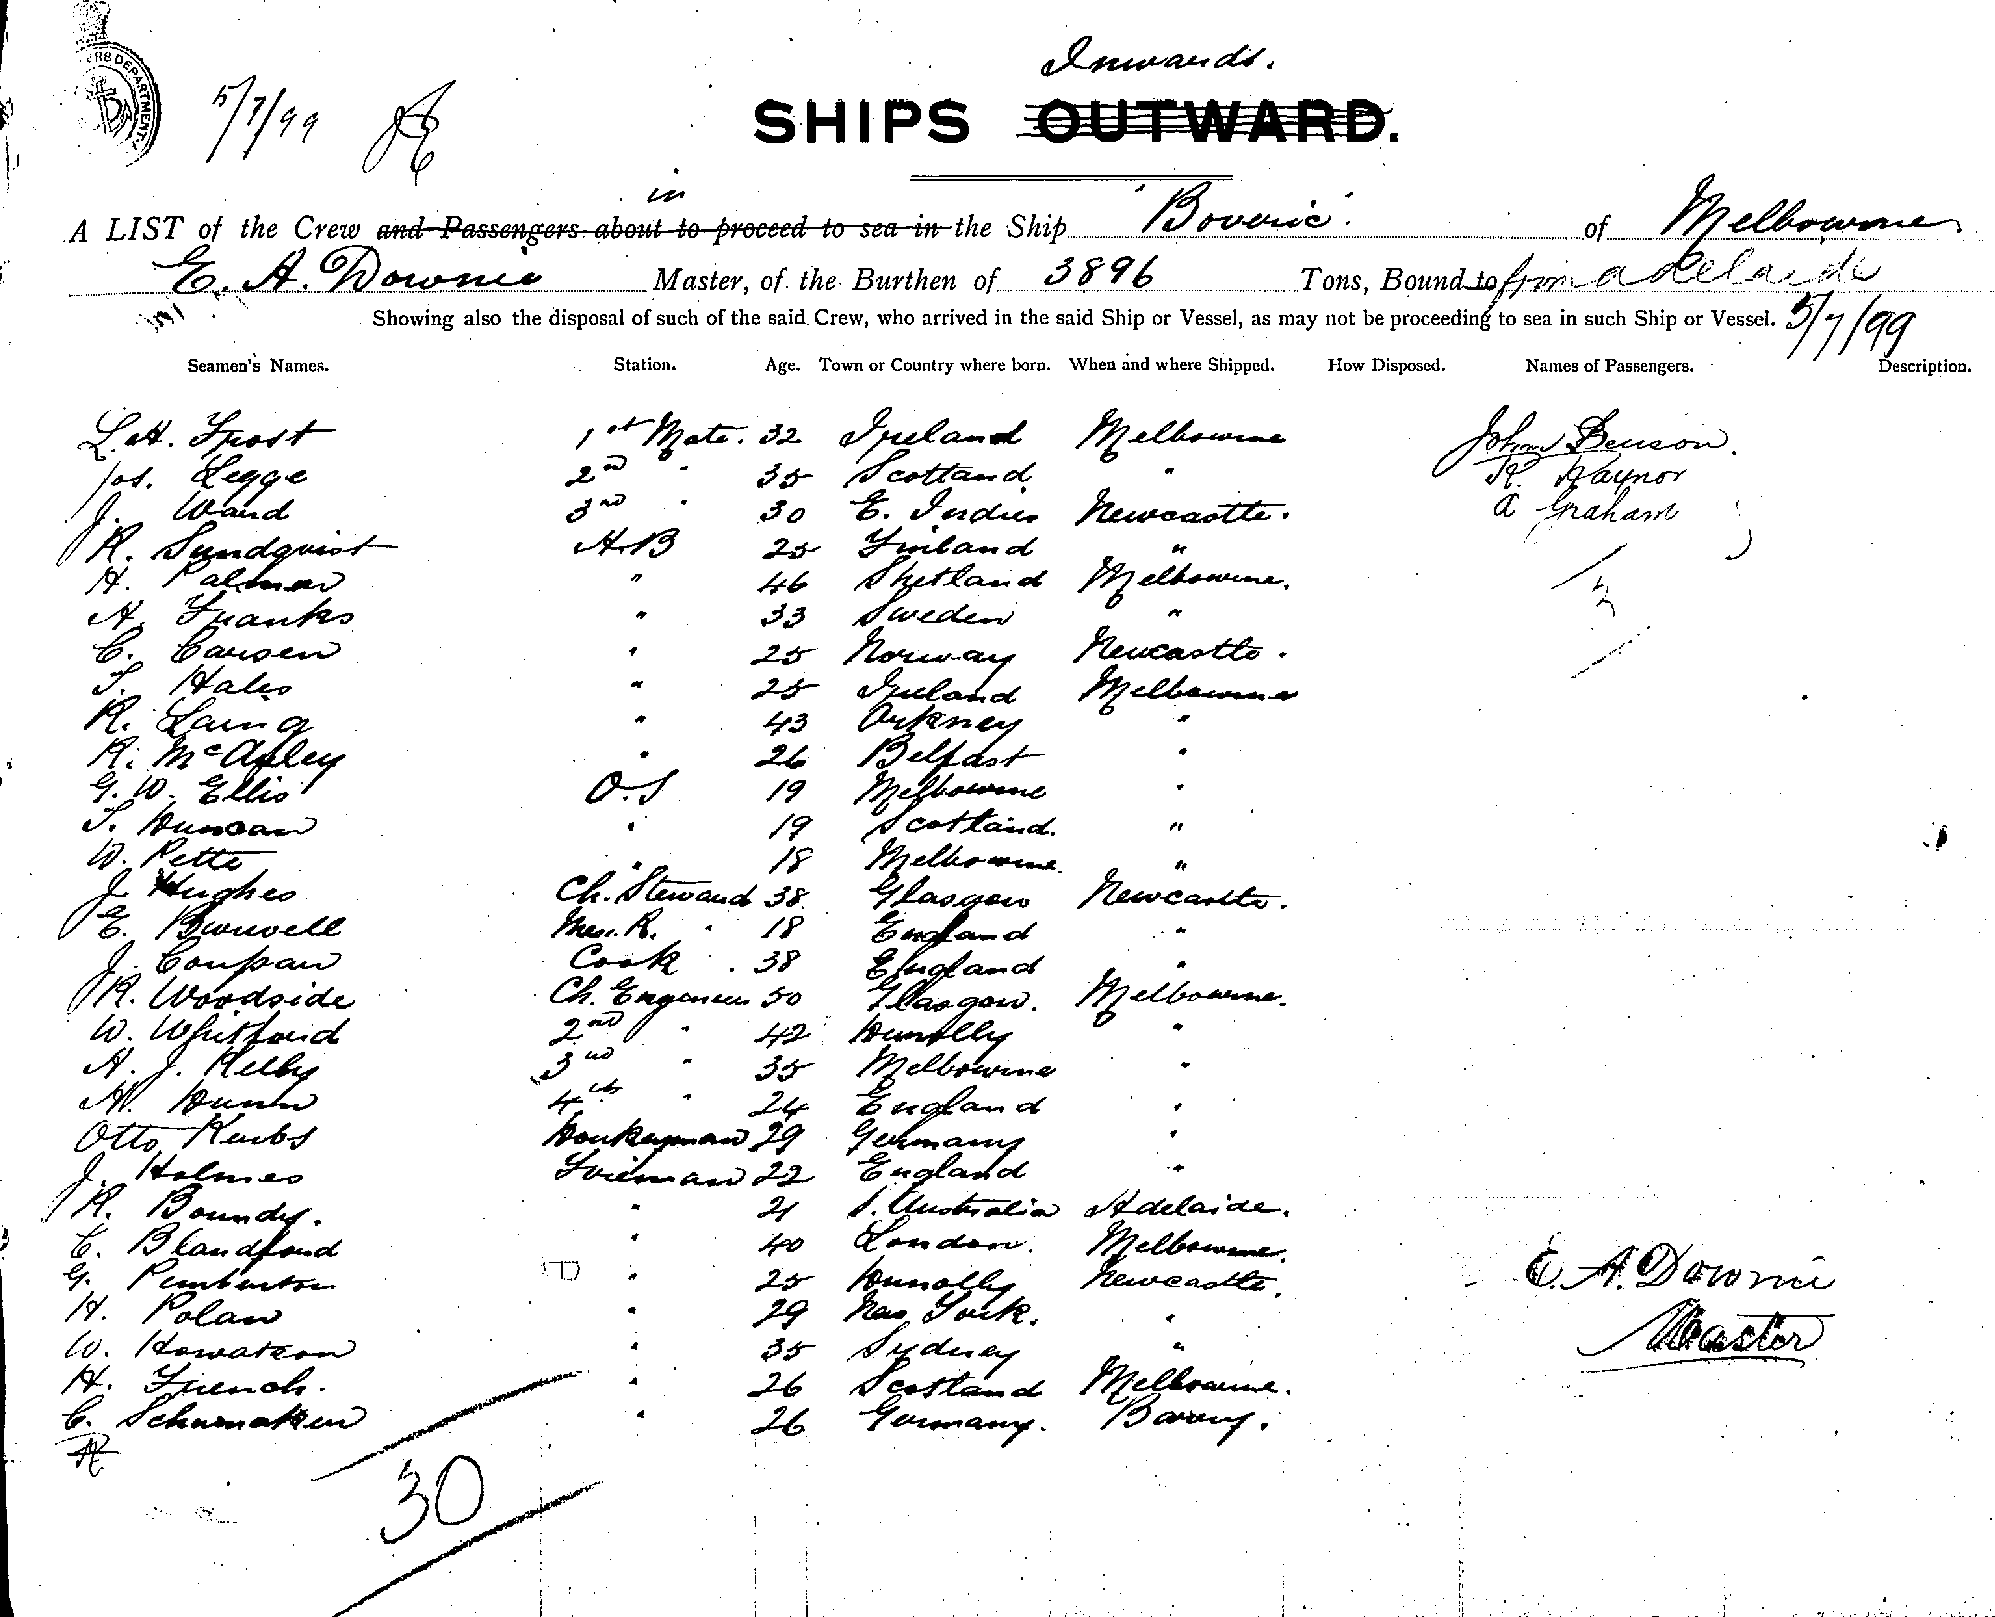 Inwards.
5/7/99
SHIPS OUTWARD.
in
A LIST of the Crew and Passengers about to proceed to sea in the Ship "Boveric" of Melbourne
E. A. Downie Master, of the Burthen of 3896 Tons, Bound to from Adelaide
Showing also the disposal of such of the said Crew, who arrived in the said Ship or Vessel, as may not be proceeding to sea in such Ship or Vessel. 5/7/99
Seamen's Names. Station. Age. Town or Country where born. When and where Shipped. How Disposed. Names of Passengers. Description.
L. H. Frost 1st Mate. 32 Ireland Melbourne John Benson.
Jos. Legge 2nd " 35 Scotland " R. Raynor
J. Ward 3rd " 30 E. Indies Newcastle. A Graham
R. Sundqvist A.B 25 Finland "
H. Palmer " 46 Shetland Melbourne. 3
A. Franks " 33 Sweden "
C. Carsen " 25 Norway Newcastle.
T. Hales " 25 Ireland Melbourne
R. Laing " 43 Orkney "
R. McAuley " 26 Belfast "
G. W. Ellis O.S 19 Melbourne "
T. Duncan " 19 Scotland. "
W. Pette " 18 Melbourne. "
J. Hughes Ch. Steward 38 Glasgow Newcastle.
E. Burwell Mes. R. " 18 England "
J. Coupan Cook . 38 England "
R. Woodside Ch. Engineer 50 Glasgow. Melbourne.
W. Whitford 2nd " 42 Dunolly "
A. J. Kelly 3rd " 35 Melbourne "
H. Dunn 4th " 24 England "
Otto Kurbs Donkeyman 29 Germany "
J. Holmes Fireman 22 England "
R. Boundy. " 21 S. Australia Adelaide.
C. Blandford " 40 London. Melbourne.
G. Pemberton " 25 Dunolly Newcastle. E. A. Downie
H. Polan " 29 New York. "
W. Howatson " 35 Sydney " Master
H. French. " 26 Scotland Melbourne.
C. Schumaken " 26 Germany. Bowny.
30